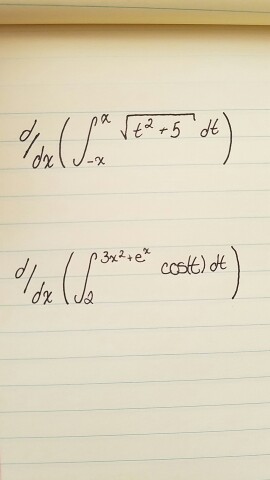 d/dx (∫_{-x}^{x} √(t² + 5) dt)
d/dx (∫_{2}^{3x²+eˣ} cos(t) dt)